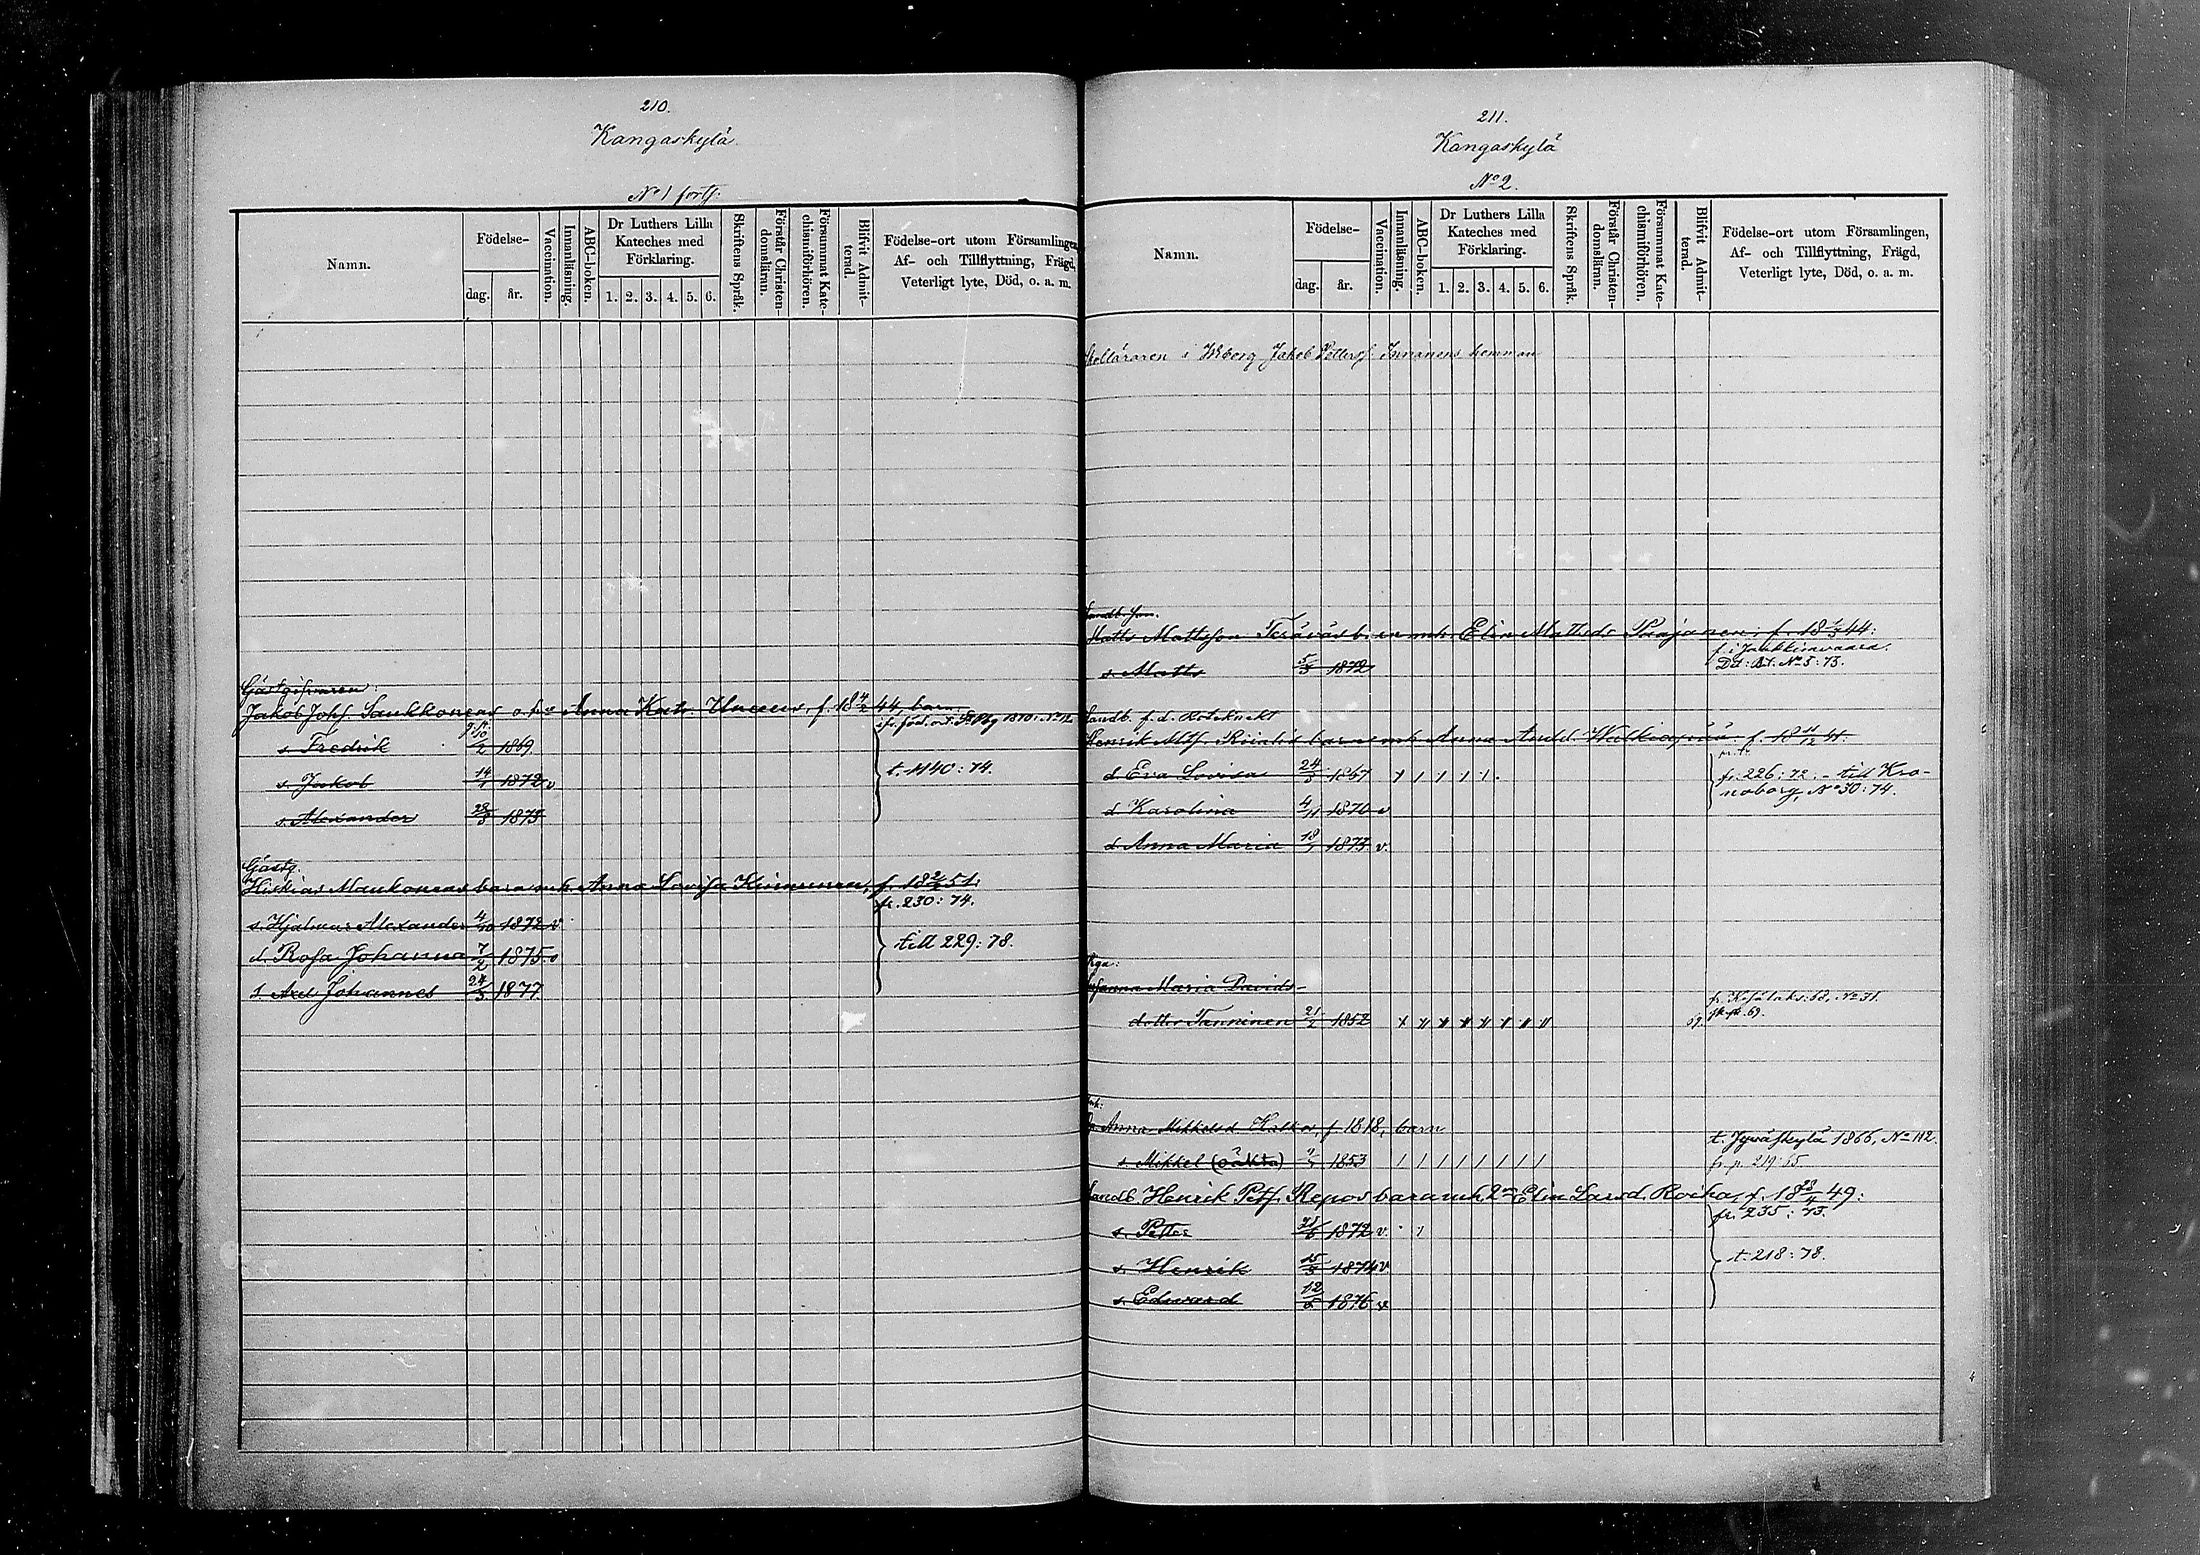 210.
Kangaskylä.
No 1 forts:
Namn.
Födelse-
dag.
år.
Vaccination.
Innanläsning.
ABC-boken.
Dr Luthers Lilla
Kateches med
Förklaring.
1. 2. 3. 4. 5. 6.
Skriftens Språk.
Förstår Christen-
domslärnn.
Försummat Kate-
chismiförhören.
Blifvit Admit-
terad.
Födelse-ort utom Församlingen,
Af- och Tillflyttning, Frägd,
Veterligt lyte, Död, o. a. m.
Gästgifvaren
Jakob Johs. Saukkonens o. h. Anna Katr. f. 18 4/2 44, barn
s. Fredrik 10/2 1869
s. Jakob 14/1 1872 v
t. 1140: 74.
s. Alexander 28/3 1873
Gästg.
Hiskias Maukonens barn m. h. Anna Lovisa Kinnunen, f. 18 51:
fr. 230: 74.
s. Hjalmar Alexander 4/10 1872 v
d. Rosa Johanna 7/2 1875 v
till 229: 78.
s Axel Johannes 24/3 1877
211.
Kangaskylä
No 2.
Namn.
Födelse-
dag.
år.
Vaccination.
Innanläsning.
ABC-boken.
Dr Luthers Lilla
Kateches med
Förklaring.
1. 2. 3. 4. 5. 6.
Skriftens Språk.
Förstår Christen-
domslärnn.
Försummat Kate-
chismiförhören.
Blifvit Admit-
terad.
Födelse-ort utom Församlingen,
Af- och Tillflyttning, Frägd,
Veterligt lyte, Död, o. a. m.
Skolläraren i Wiborg Jakob Petters. Innanens hemman
Matts Mattsson Teräväs b. m. h. Elin Mattsd. Paajanen, f. 18 44:
s. Matts 5/3 1872
No 5: 73.
Landb. f. d. Roteknekt
Henrik Mts. barn m. h. Anna f. 18 11/12 41.
d. Eva Lovisa 24/3 1867
fr. 226: 72. - till Kro-
noborg, No 30: 74.
d. Karolina 4/11 1870 v
d. Anna Maria 18/1 1873 v.
Susanna Maria Davids-
dotter Tanninen 21/2 1852
fr. Kesälaks: 68, No 31.
69.
Anna Mikkelsd. f. 1818, barn
t. Jyväskylä 1866, No 112.
s. Mikkel (oäkta) 1853
fr. p. 219: 65
Landb. Henrik Pets. Repos barn m. h. 2 Elin Larsd. Roiha, f. 18 49:
fr. 235: 73.
s. Petter 1872 v.
t. 218: 78.
s. Henrik 15/3 1874 v.
s. Edvard 12/5 1876 v